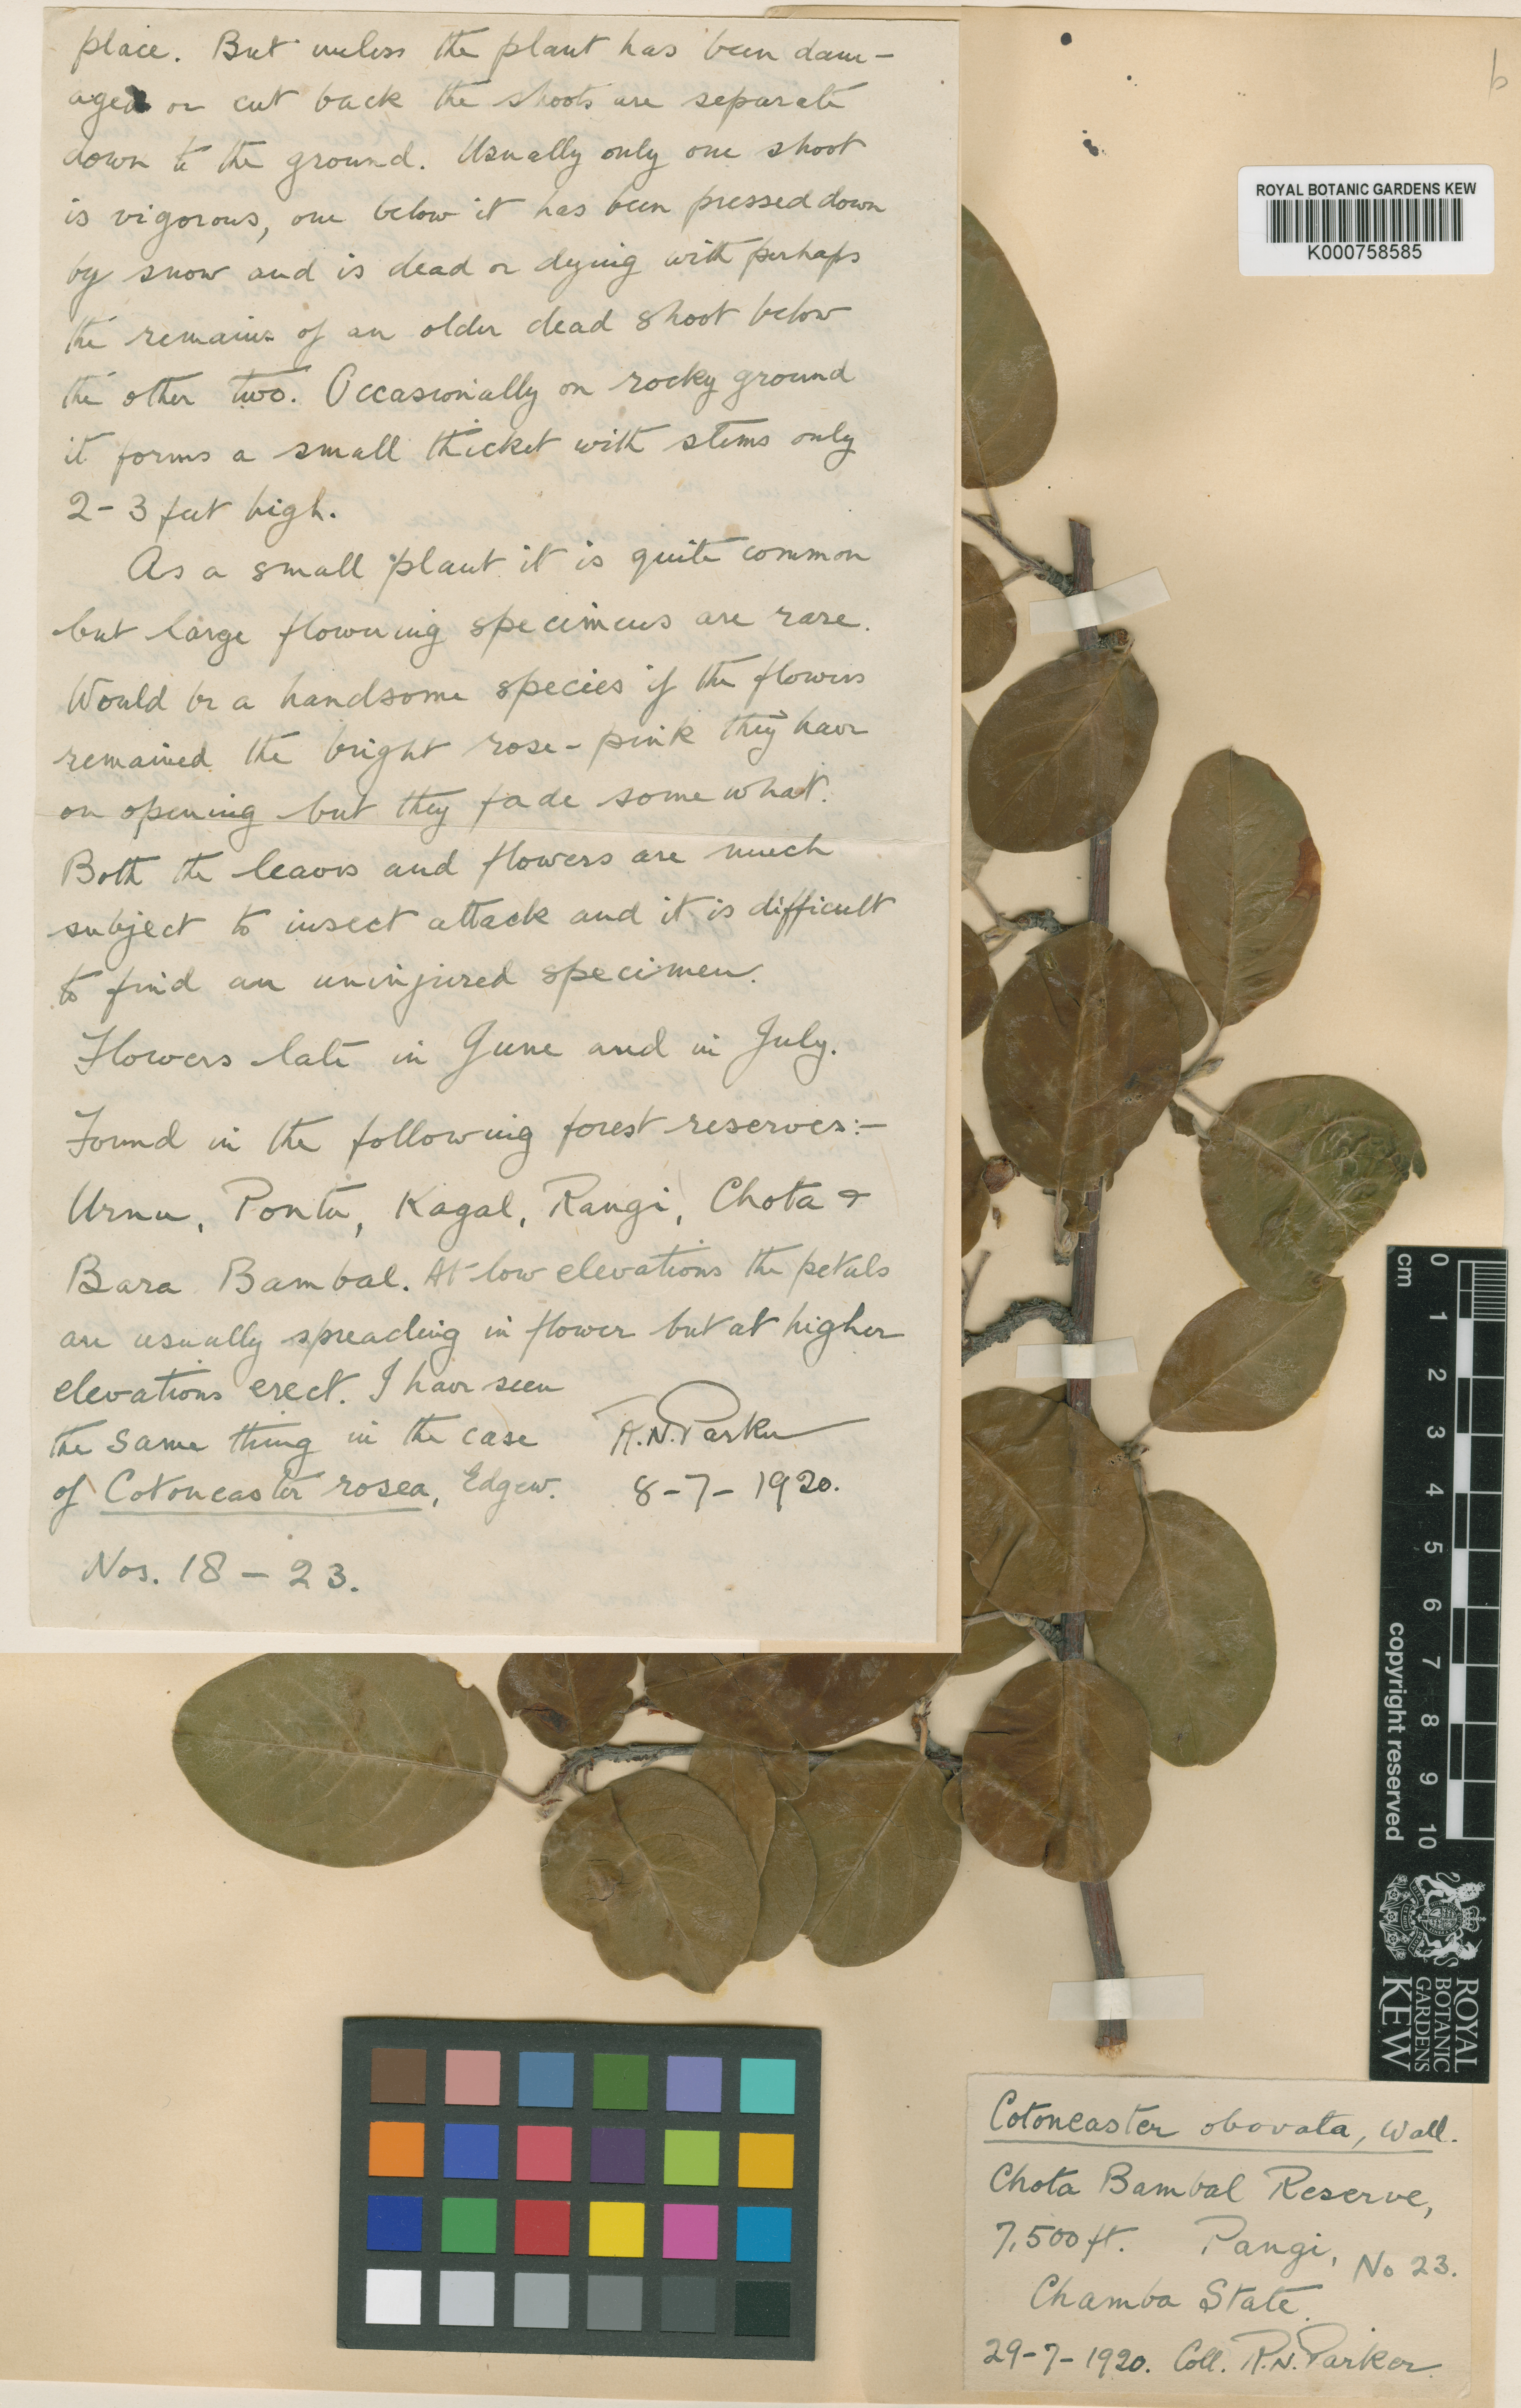 place. But unless the plant has been dam-
aged or cut back the shoots are separate
down to the ground. Usually only one shoot
is vigorous, one below it has been pressed down
by snow and is dead or dying with perhaps
the remains of an older dead shoot below
the other two. Occasionally on rocky ground
it forms a small thicket with stems only
2-3 feet high.
As a small plant it is quite common
but large flowering specimens are rare.
Would be a handsome species if the flowers
remained the bright rose-pink they have
on opening but they fade somewhat.
Both the leaves and flowers are much
subject to insect attack and it is difficult
to find an uninjured specimen.
Flowers late in June and in July.
Found in the following forest reserves:-
Urnu, Pontu, Kagal, Rangi, Chota &
Bara Bambal. At low elevations the petals
are usually spreading in flower but at higher
elevations erect. I have seen
the same thing in the case
of Cotoneaster rosea, Edgew.
R.N. Parker
8-7-1920.
Nos. 18-23.
b
ROYAL BOTANIC GARDENS KEW
K000758585
cm 0 1 2 3 4 5 6 7 8 9 10
copyright reserved
ROYAL
BOTANIC
GARDENS
KEW
Cotoneaster obovata, Wall.
Chota Bambal Reserve,
7,500 ft. Pangi,
No 23.
Chamba State.
29-7-1920. Coll. R.N. Parker.